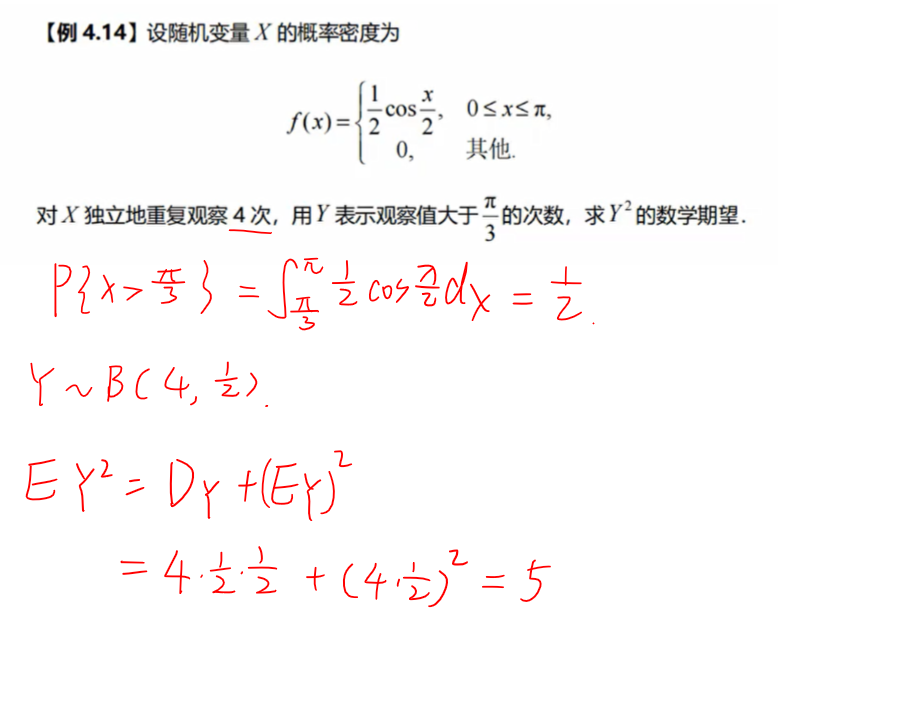 【例 4.14】设随机变量 X 的概率密度为
f(x)={ 1/2 cos x/2, 0≤x≤π,
0, 其他.
对 X 独立地重复观察 4 次，用 Y 表示观察值大于 π/3 的次数，求 Y² 的数学期望.
P{X>π/3} = ∫_{π/3}^{π} 1/2 cos x/2 dx = 1/2.
Y~B(4, 1/2).
EY² = DY+(EY)²
= 4·1/2·1/2 + (4·1/2)² = 5